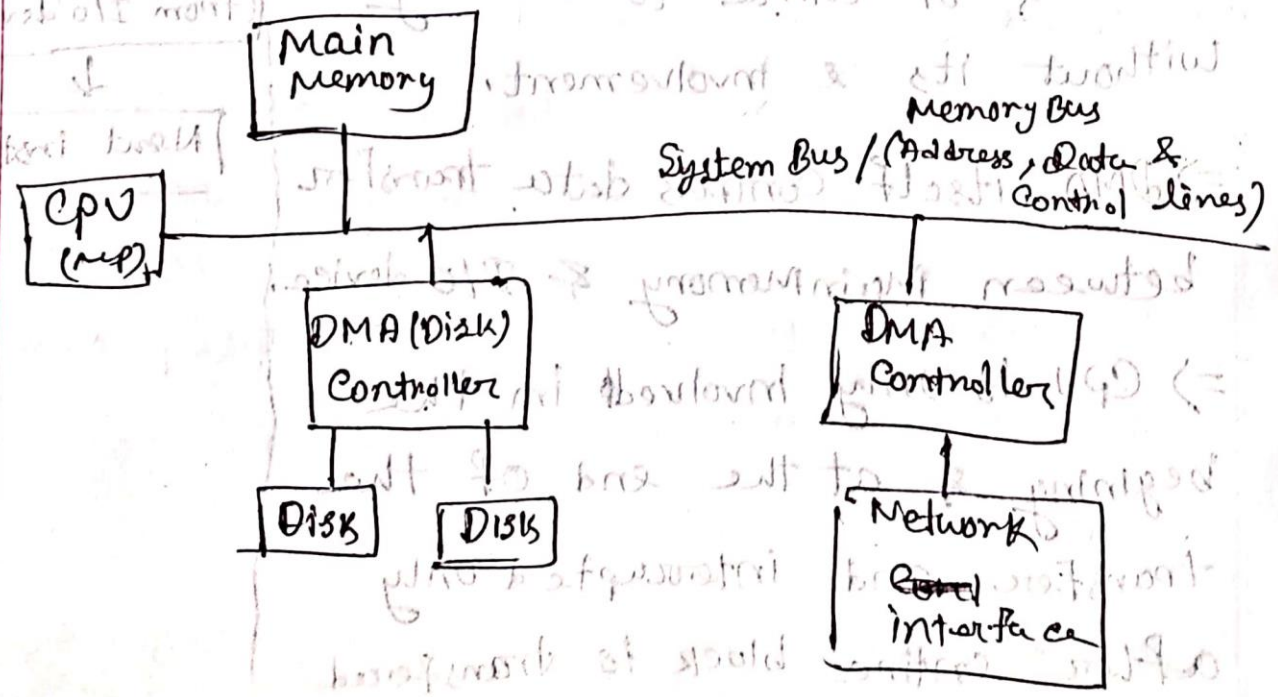 Main
Memory
Memory Bus
System Bus / (Address, Data &
Control lines)
CPU
(MP)
DMA (Disk)
Controller
DMA
Controller
Disk
Disk
Network
interface